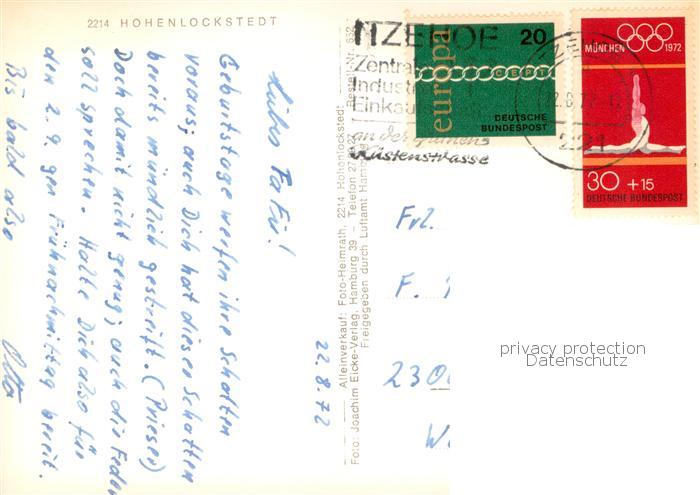 2214 HOHENLOCKSTEDT
22.8.72
Liebes Fa Fü!
Geburtstage werfen ihre Schatten
voraus; auch Dich hat dieser Schatten
bereits mündlich gestreift. (Prieser)
Doch damit nicht genug; auch die Feder
soll sprechen. Halte Dich also für
den 2.9. gen Frühnachmittag bereit.
Bis bald also
Otto
Alleinverkauf: Foto-Heimrath, 2214 Hohenlockstedt
Foto: Joachim Eicke-Verlag, Hamburg 39 – Telefon
Bestell-Nr.
Freigegeben durch Luftamt Hamburg
ITZEHOE
Zentral
Industrie
Einkauf
an der Grünen
Küstenstrasse
europa
20
CEPT
DEUTSCHE
BUNDESPOST
MÜNCHEN 1972
30 +15
DEUTSCHE BUNDESPOST
221
Frl.
F.
230
privacy protection
Datenschutz